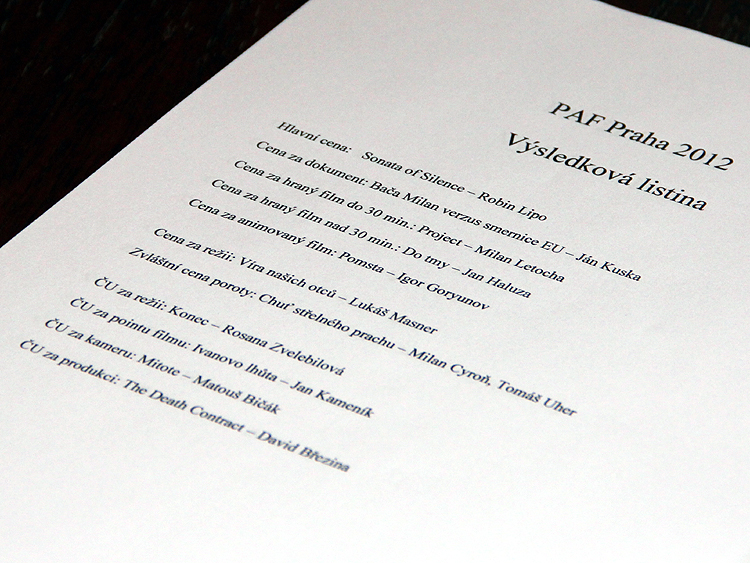 PAF Praha 2012
Výsledková listina
Hlavní cena: Sonata of Silence – Robin Lipo
Cena za dokument: Bača Milan verzus smernice EU – Ján Kuska
Cena za hraný film do 30 min.: Project – Milan Letocha
Cena za hraný film nad 30 min.: Do tmy – Jan Haluza
Cena za animovaný film: Pomsta – Igor Goryunov
Cena za režii: Víra našich otců – Lukáš Masner
Zvláštní cena poroty: Chuť střelného prachu – Milan Cyroň, Tomáš Uher
ČU za režii: Konec – Rosana Zvelebilová
ČU za pointu filmu: Ivanovo lhůta – Jan Kameník
ČU za kameru: Mitote – Matouš Bičák
ČU za produkci: The Death Contract – David Březina